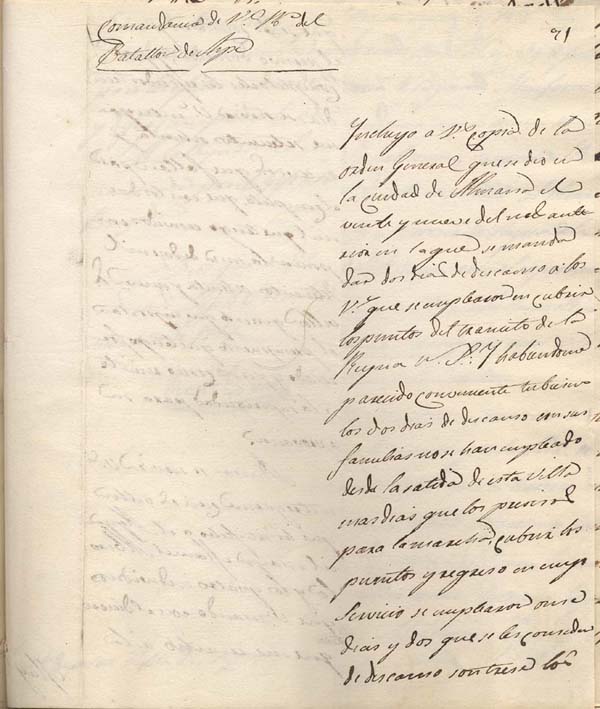 Comandancia de V.s R.s del
Batallon de Aspe
71
Incluyo á V. Copia de la
orden General que se dio en
la Ciudad de Almansa el
veinte y nueve del mes ante
rior en la que se manda
dar dos dias de descanso á los
V.s que se emplearon en cubrir
los puntos del transito de la
Reyna N. S.ª Y habiendome
parecido conveniente tubiesen
los dos dias de descanso con sus
familias no se han empleado
desde la salida de esta villa
mas dias que los precisos
para la marcha, cubrir los
puntos y regreso en cuyo
servicio se emplearon onse
dias y dos que se les conseden
de descanso son trese los